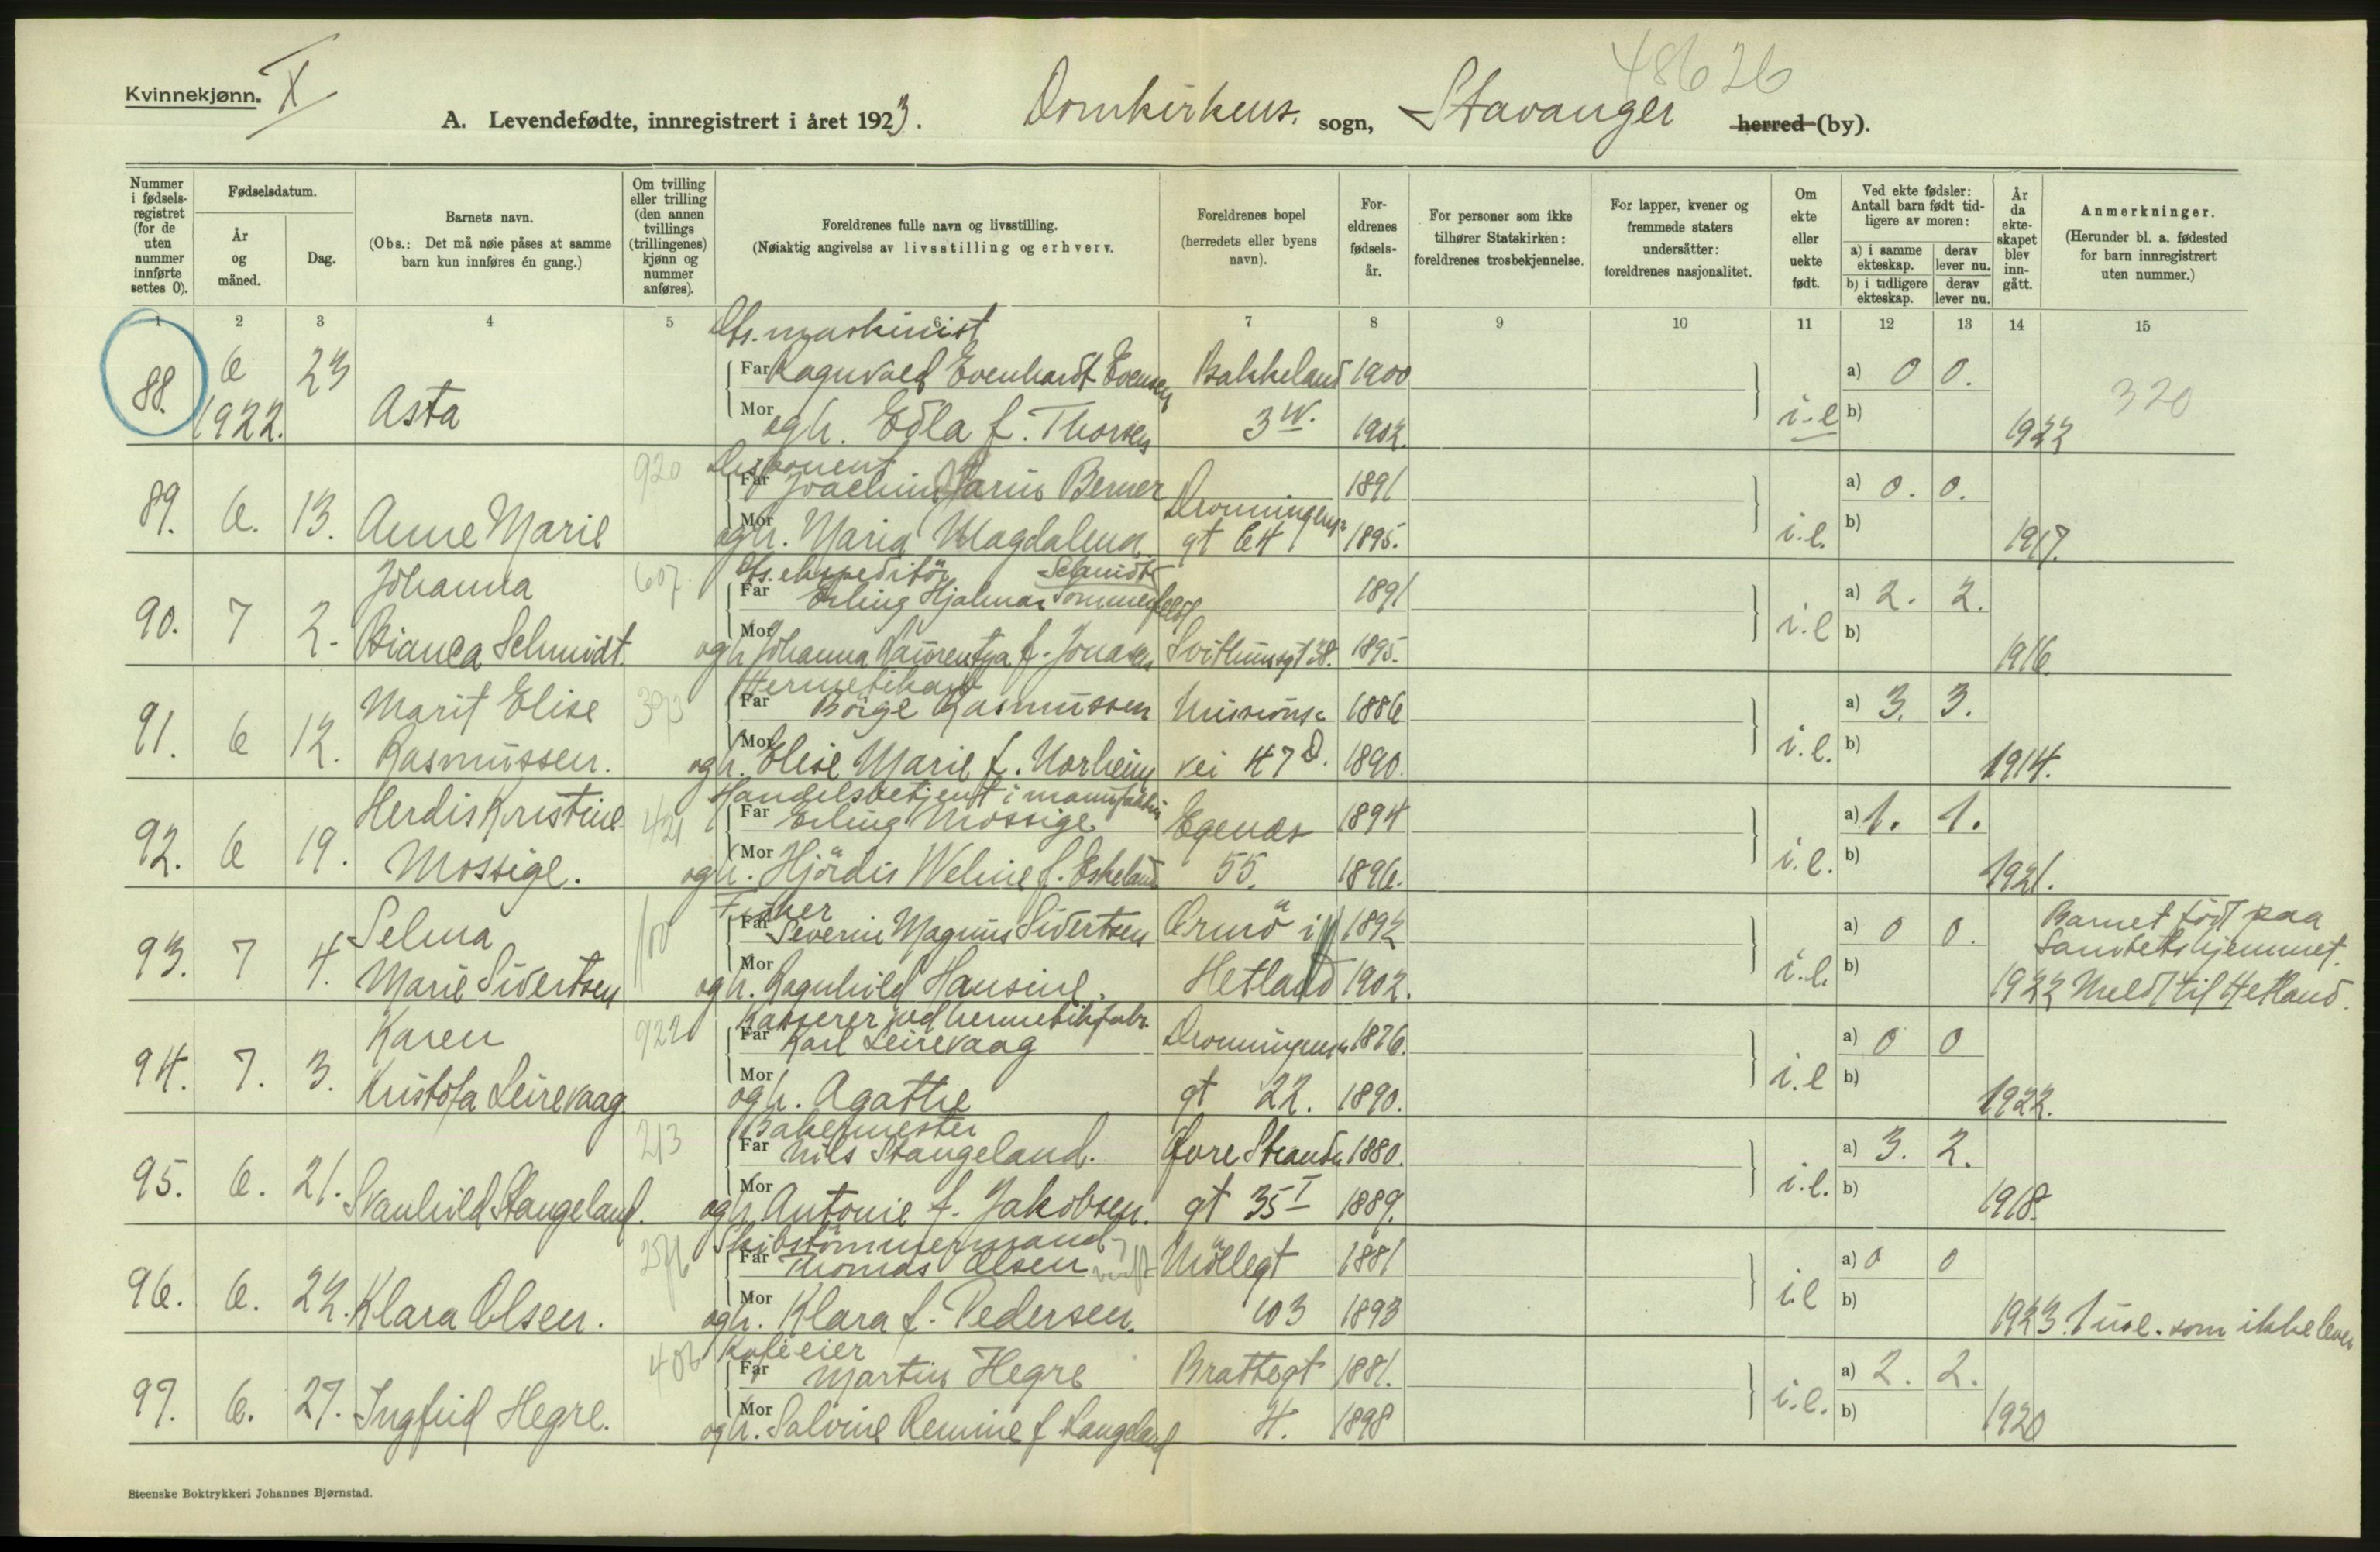 48626
Kvinnekjønn. X
A. Levendefødte, innregistrert i året 1923. Domkirkens. sogn, Stavanger herred (by).
Nummer i fødsels-registret (for de uten nummer innførte settes 0).
Fødselsdatum.
År og måned.
Dag.
Barnets navn.
(Obs.: Det må nøie påses at samme barn kun innføres én gang.)
Om tvilling eller trilling (den annen tvillings (trillingenes) kjønn og nummer anføres).
Foreldrenes fulle navn og livsstilling.
(Nøiaktig angivelse av livsstilling og erhverv.
Foreldrenes bopel (herredets eller byens navn).
For-eldrenes fødsels-år.
For personer som ikke tilhører Statskirken: foreldrenes trosbekjennelse.
For lapper, kvener og fremmede staters undersåtter: foreldrenes nasjonalitet.
Om ekte eller uekte født.
Ved ekte fødsler: Antall barn født tid-ligere av moren:
a) i samme ekteskap. derav lever nu.
b) i tidligere ekteskap. derav lever nu.
År da ekte-skapet blev inn-gått.
Anmerkninger.
(Herunder bl. a. fødested for barn innregistrert uten nummer.)
1 2 3 4 5 6 7 8 9 10 11 12 13 14 15
Ass. maskinist
88. 6 23 Far Ragnvald Evenhardt Evensen Bakkeland 1900 a) 0 0. 320
1922. Asta Mor og h. Edla f. Thorsen 3 IV. 1902. i-e b) 1922
920 Disponent
Far Joachim Marius Berner 1891 a) 0. 0.
89. 6. 13. Anne Marie Mor og h. Maria Magdalena Dronningens gt 64 1895. i.e. b) 1917.
Johanna 607. Ass. ekspeditör Schmidt
Far Erling Hjalmar Sommerfeldt 1891 a) 2. 2.
90. 7 2. Bianca Schmidt Mor og h Johanna Laurentza f. Jonassen Svithunsgt 38. 1895. i.e b) 1916
Hermetikarb
Marit Elise 393 Far Börge Rasmussen Missions- 1886 a) 3. 3.
91. 6 12. Rasmussen. Mor og h. Elise Marie f. Norheim vei 47 D. 1890. i.e. b) 1914.
Handelsbetjent i manufaktur
Herdis Kristine 421 Far Erling Mossige Egenæs 1894 a) 1. 1.
92. 6 19. Mossige. Mor og h. Hjördis Weline f. Eskeland 55. 1896. i.e. b) 1921.
Fisker
Selma 100 Far Severin Magnus Sivertsen Ormö i 1892 a) 0 0. Barnet födt paa Sanitetshjemmet.
93. 7 4. Marie Sivertsen Mor og h. Ragnhild Hansine. Hetland 1902. i.e. b) 1922 Meldt til Hetland.
Kasserer ved hermetikfabr.
Karen 922 Far Karl Leirevaag Dronningens 1876. a) 0 0
94. 7. 3. Kristofa Leirevaag Mor og h. Agathe gt 22. 1890. i.e b) 1922.
213 Bakermester
Far Nils Stangeland. Övre Strand 1880. a) 3. 2.
95. 6. 21. Svanhild Stangeland. Mor og h Antonie f. Jakobsen. gt 35 I 1889. i.e. b) 1918.
Skibstömmermand
Far Thomas Olsen Möllegt 1881 a) 0 0
96. 6. 22. Klara Olsen. Mor og h. Klara f. Pedersen. 103 1893 i.e b) 1923. 1 u.e. som ikke lever
406 Kafeeier
Far Martin Hegre Brattegt 1881. a) 2. 2.
97. 6. 27. Ingfrid Hegre. Mor og h. Salvine Remine f Langeland 4. 1898 i.e. b) 1920
Steenske Boktrykkeri Johannes Bjørnstad.